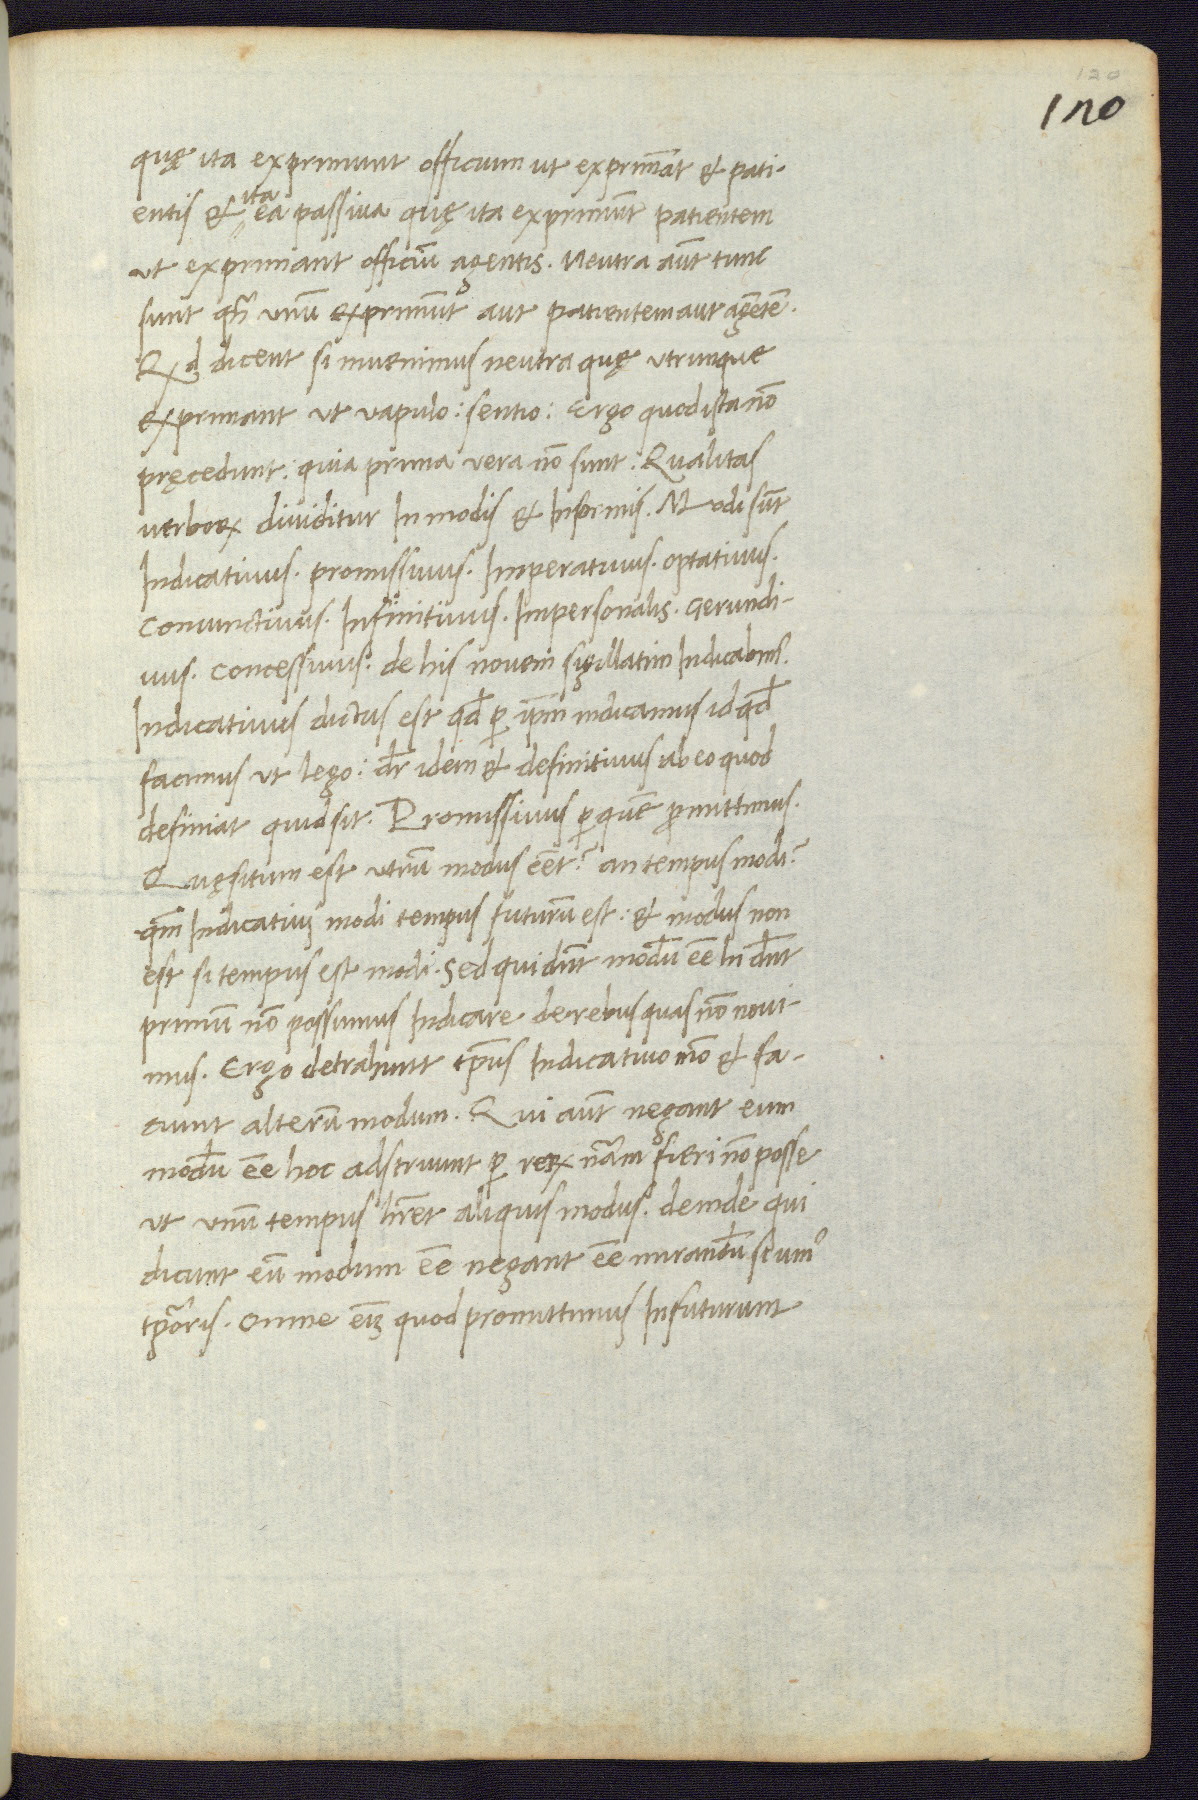 120
120
quę ita exprimunt officium ut exprimāt & pati-
entis & ita ea passiua quę ita exprimūt patientem
ut exprimant officiū agentis. Neutra aūt tunc
sunt qn̄ unū exprimūt aut patientem aut agētē.
Qd dicent si inuenimus neutra quę utrunque
exprimant ut vapulo: sentio: Ergo quod ista nō
pręcedunt: quia prima vera nō sunt: Qualitas
verboꝝ diuiditur In modis & In formis. Modi sūt
Indicatiuus. promissiuus. Imperatiuus. optatiuus.
Coniunctiuus. Infinitiuus. Impersonalis. Gerundi-
uus. Concessiuus. de his novem sigillatim Indicabim̃.
Indicatiuus dictus est qd̄ ꝑ ip̄m indicamus id qd̄
facimus ut lego: dr̄ idem & definitiuus ab eo quod
definiat quid sit. Promissiuus ꝑ quē ꝓmittimus.
Quęsitum est utrū modus eēt? an tempus modi?
qm̄ Indicatiui modi tempus futurū est: & modus non
est si tempus est modi. Sed qui dn̄t modū eē hi dn̄t
primū nō possumus Indicare de rebus quas nō noui-
mus. Ergo detrahunt tp̄us Indicatiuo mō & fa-
ciunt alterū modum. Qui aūt negant eum
modū eē hoc adstruunt ꝑ reꝝ nr̄am fieri nō posse
ut unū tempus hr̄et aliquis modus. deinde qui
dicunt eū modum eē negant eē mirandū si unꝰ
tp̄oris. Omne enī quod promittimus In futurum